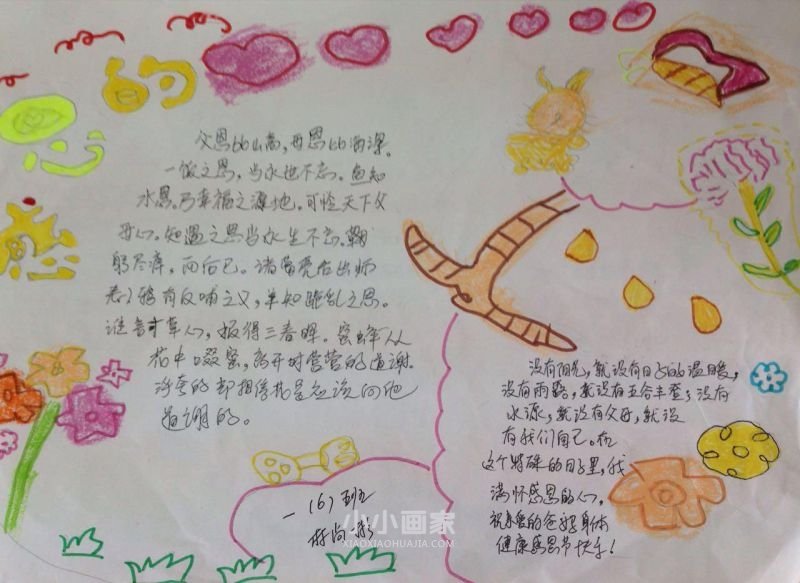 感恩的
父恩比山高，母恩比海深。
一饭之恩，当永世不忘。鱼知
水恩，乃幸福之源地。可怪天下父
母心。知遇之恩当永生不忘。鞠
躬尽瘁，而后已。诸葛亮在出师
表》鸦有反哺之义，羊知跪乳之恩。
谁言寸草心，报得三春晖。蜜蜂从
花中啜蜜，离开时营营的道谢。
浮夸的却相信花是应该向他
道谢的。
没有阳光，就没有日子的温暖，
没有雨露，就没有五谷丰登；没有
水源，就没有父母，就没
有我们自己。在
这个特殊的日子里，我
满怀感恩的心，
祝亲爱的爸妈身体
健康感恩节快乐！
一（6）班
小小画家
XIAOXIAOHUAJIA.COM